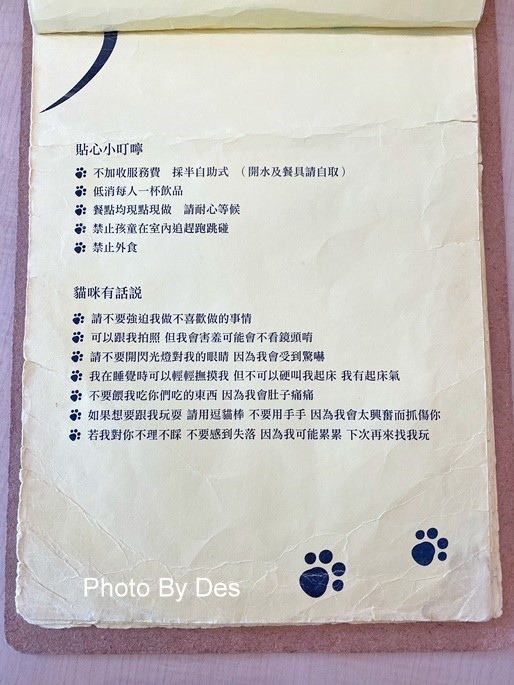 貼心小叮嚀
不加收服務費　採半自助式　（開水及餐具請自取）
低消每人一杯飲品
餐點均現點現做　請耐心等候
禁止孩童在室內追趕跑跳碰
禁止外食
貓咪有話說
請不要強迫我做不喜歡做的事情
可以跟我拍照 但我會害羞可能會不看鏡頭唷
請不要開閃光燈對我的眼睛 因為我會受到驚嚇
我在睡覺時可以輕輕撫摸我 但不可以硬叫我起床 我有起床氣
不要餵我吃你們吃的東西 因為我會肚子痛痛
如果想要跟我玩耍 請用逗貓棒 不要用手手 因為我會太興奮而抓傷你
若我對你不理不睬 不要感到失落 因為我可能累累 下次再來找我玩
Photo By Des